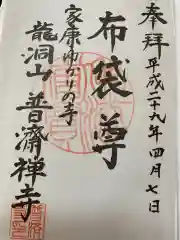 奉拝 平成二十九年四月七日
布袋尊
家康ゆかりの寺
龍洞山 普濟禅寺